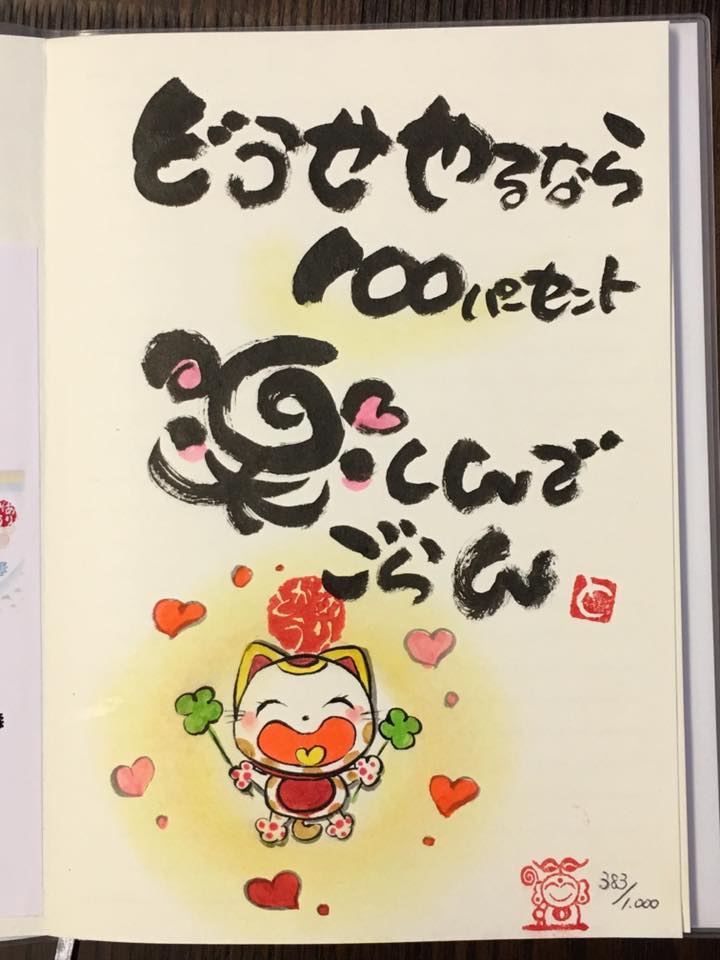 どうせやるなら
100パーセント
楽しんで
ごらん
383/1.000